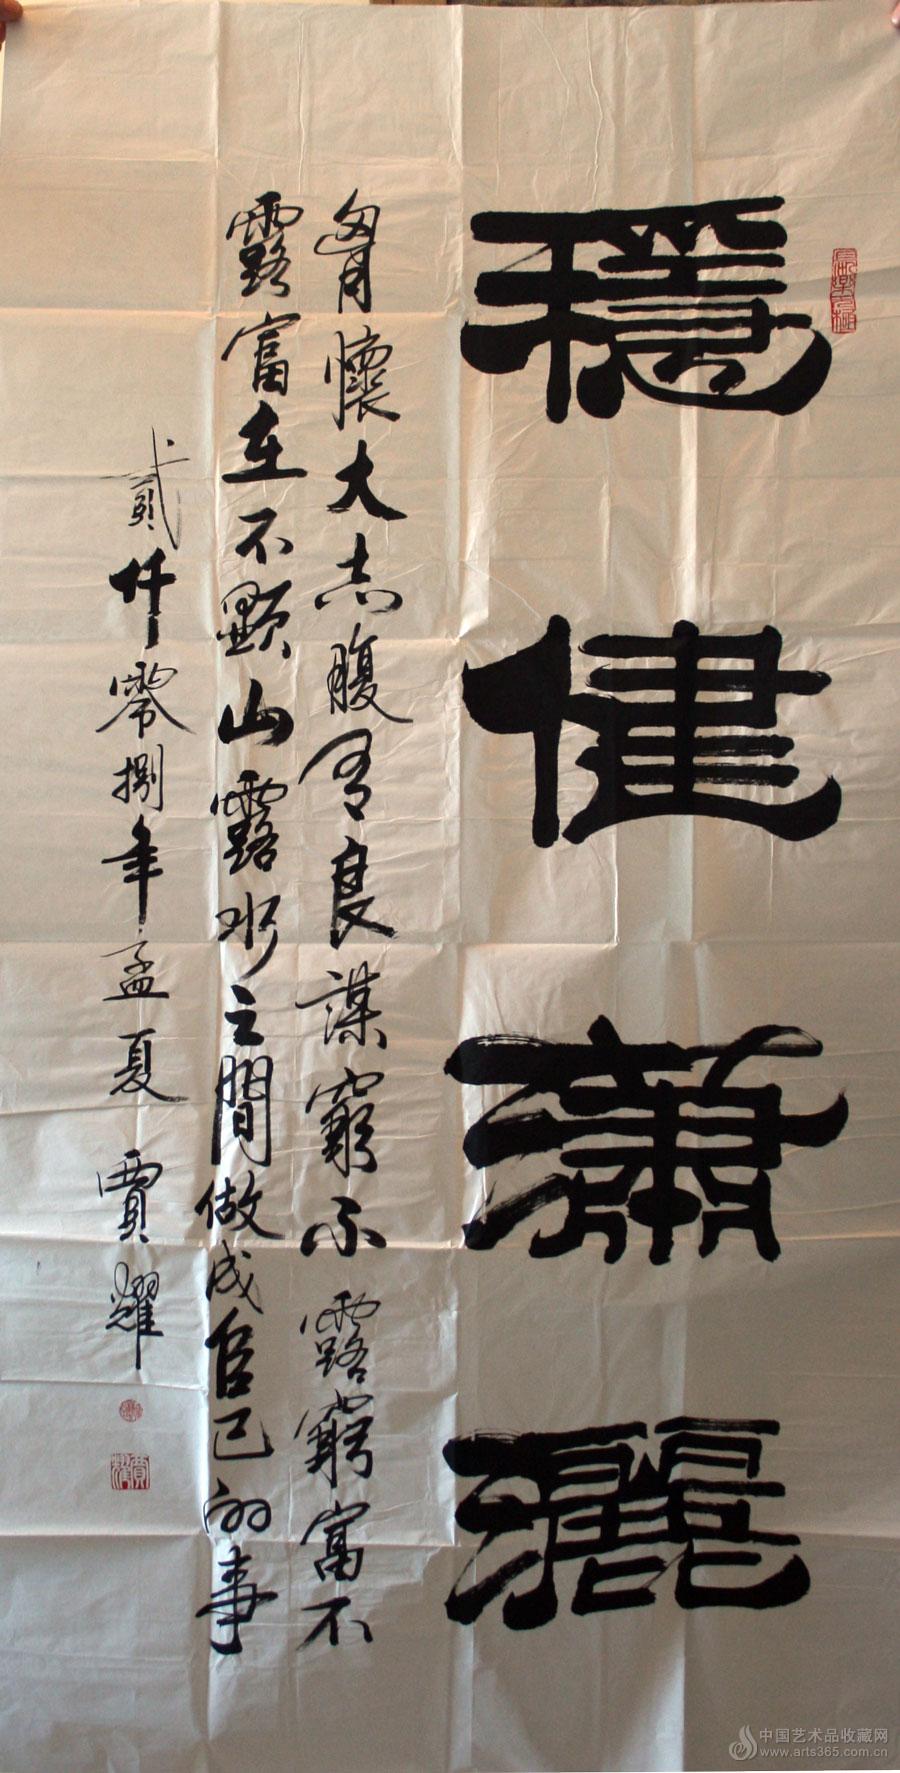 穩健瀟灑
胷懷大志腹有良謀窮不露窮富不
露富在不顯山露水之間做成自己的事
貳仟零捌年孟夏 賈耀
賈耀
中国艺术品收藏网
www.arts365.com.cn